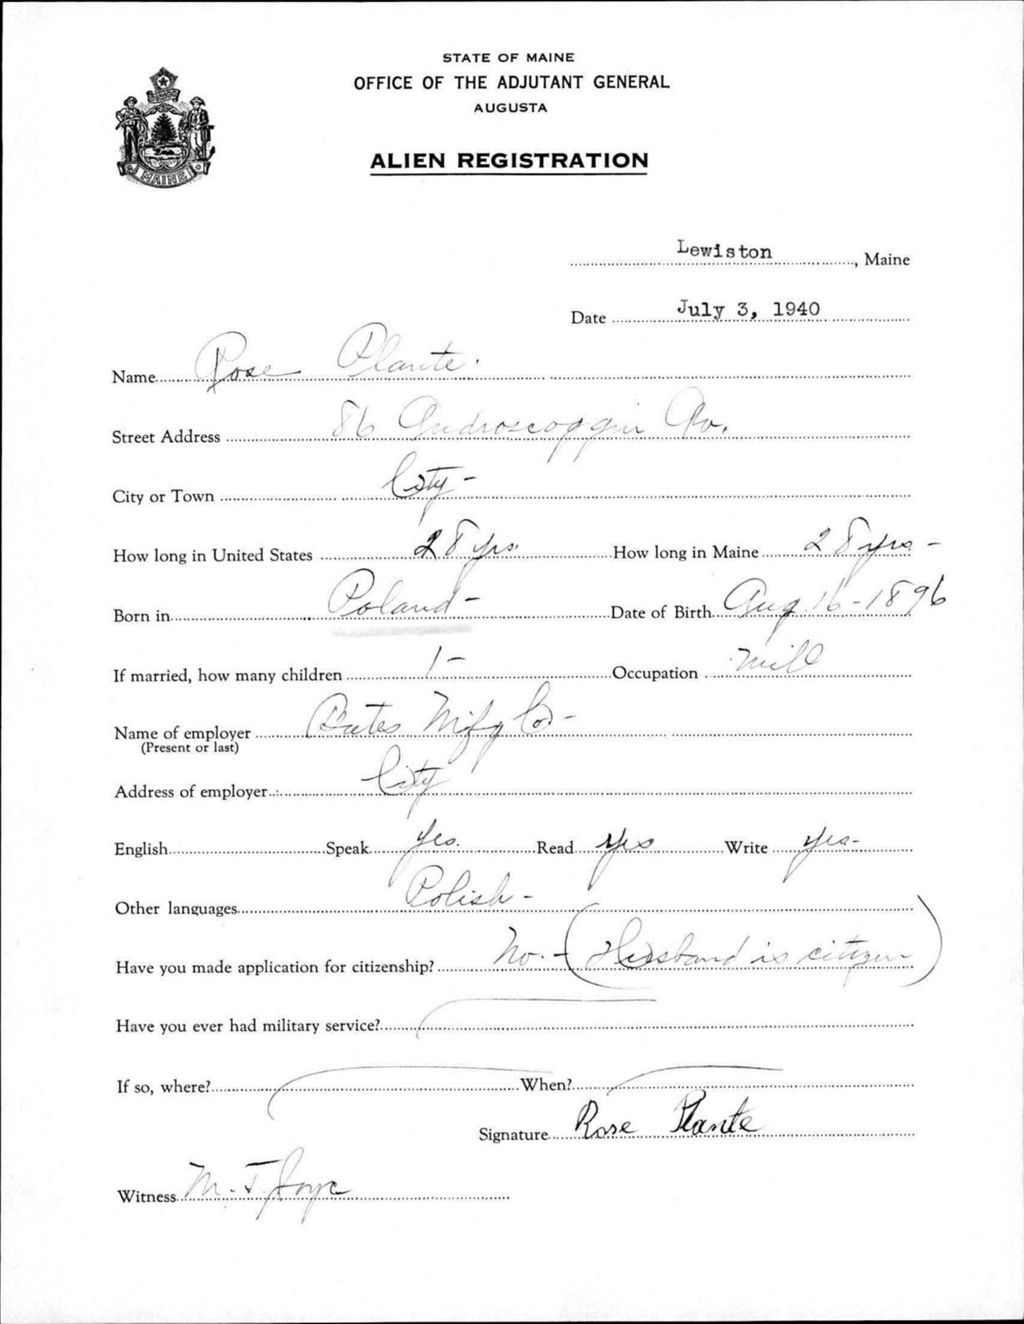 STATE OF MAINE
OFFICE OF THE ADJUTANT GENERAL
AUGUSTA
ALIEN REGISTRATION
MAINE
Lewiston, Maine
Date July 3, 1940
Name Rose Plante.
Street Address 86 Androscoggin Av.
City or Town City -
How long in United States 28 yrs. How long in Maine 28 yrs -
Born in Poland - Date of Birth Aug 16 - 1896
If married, how many children 1 - Occupation Mill
Name of employer Bates Mnfg Co. -
(Present or last)
Address of employer City
English Speak yes. Read yes Write yes -
Other languages Polish -
Have you made application for citizenship? No. - (Husband is citizen)
Have you ever had military service?
If so, where? When?
Signature Rose Plante
Witness M. J. Joyc